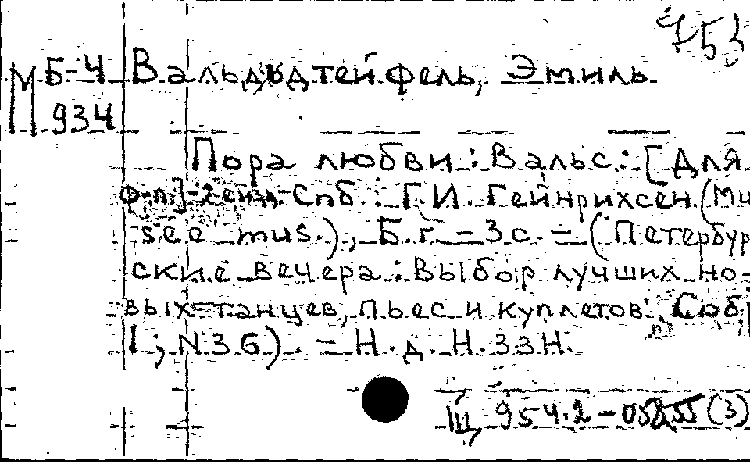 753
М Б-4 Вальдтейфель, Эмиль
934
Пора любви : Вальс : [Для
ф-п.]-2 изд.-Спб. : Г.И. Гейнрихсен (Mu
see mus.), Б.г. - 3 с. - (Петербур
ские вечера : Выбор лучших но-
вых танцев, пьес и куплетов. Собр
I ; N 36). - Н.д. Н.33Н.
Щ 954.2- (3)